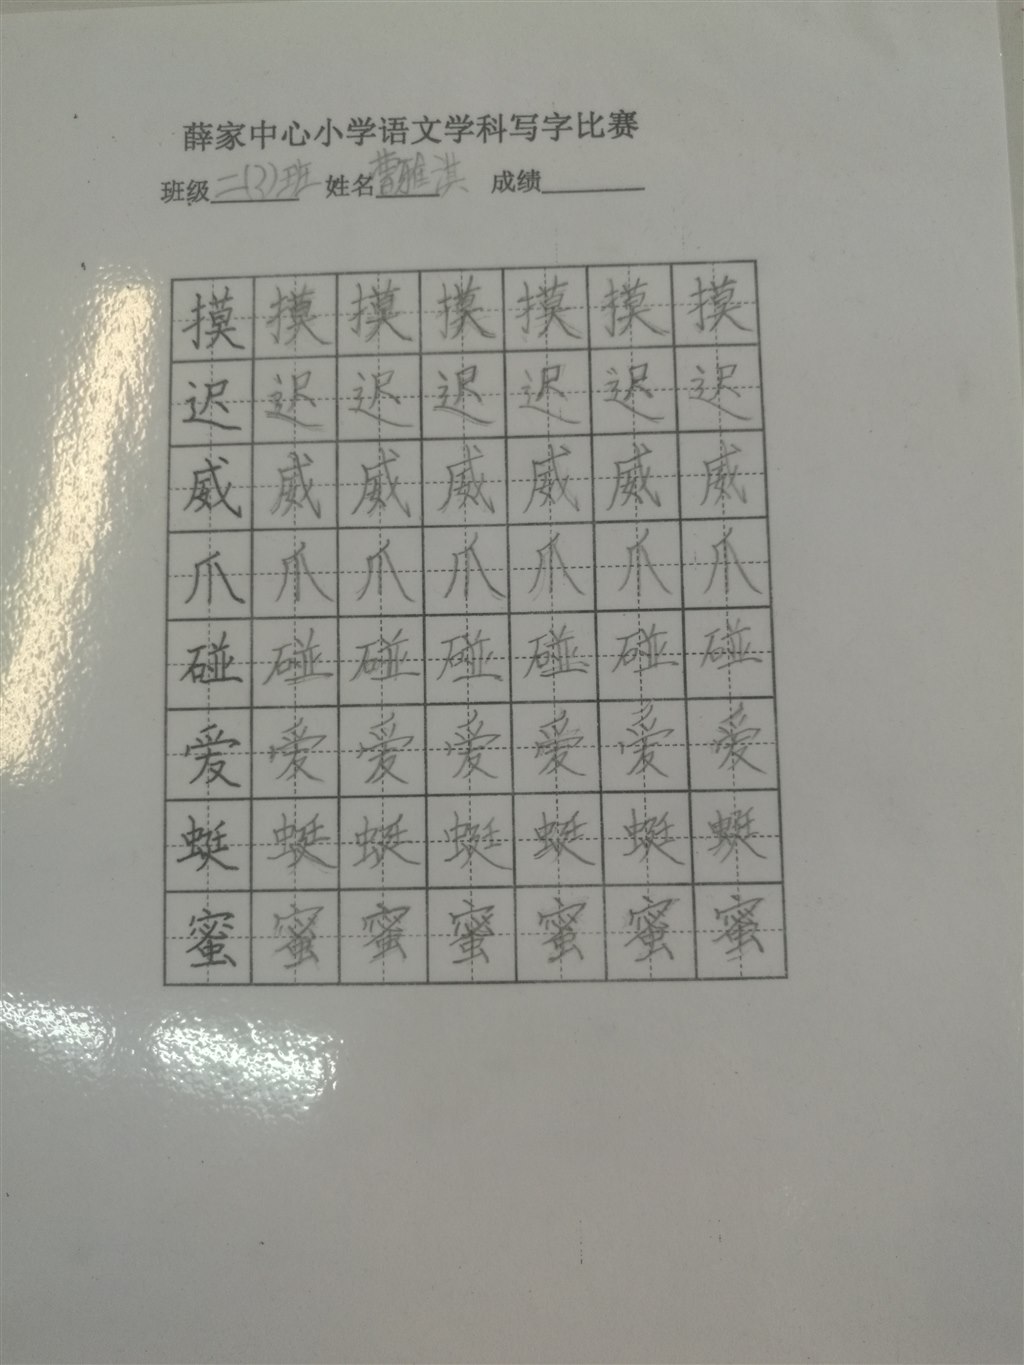 薛家中心小学语文学科写字比赛
班级二(3)班 姓名曹雅淇 成绩
摸摸摸摸摸摸摸
迟迟迟迟迟迟迟
威威威威威威威
爪爪爪爪爪爪爪
碰碰碰碰碰碰碰
爱爱爱爱爱爱爱
蜓蜓蜓蜓蜓蜓蜓
蜜蜜蜜蜜蜜蜜蜜